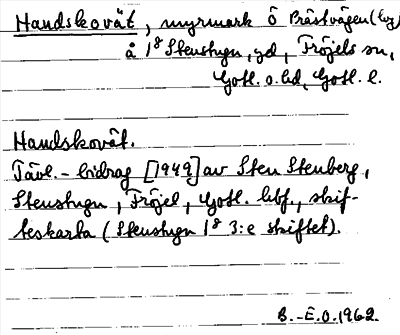 Handskovät, myrmark Ö Prästvägen (Lvg)
å 1⁸ Stenstugn, gd, Fröjels sn,
Gotl. s. hd, Gotl. l.
Handskovät.
Tävl.-bidrag [1949] av Sten Stenberg,
Stenstugn, Fröjel, Gotl. hbf., skif-
teskarta (Stenstugn 1⁸ 3:e skiftet).
B.-E.O. 1962.